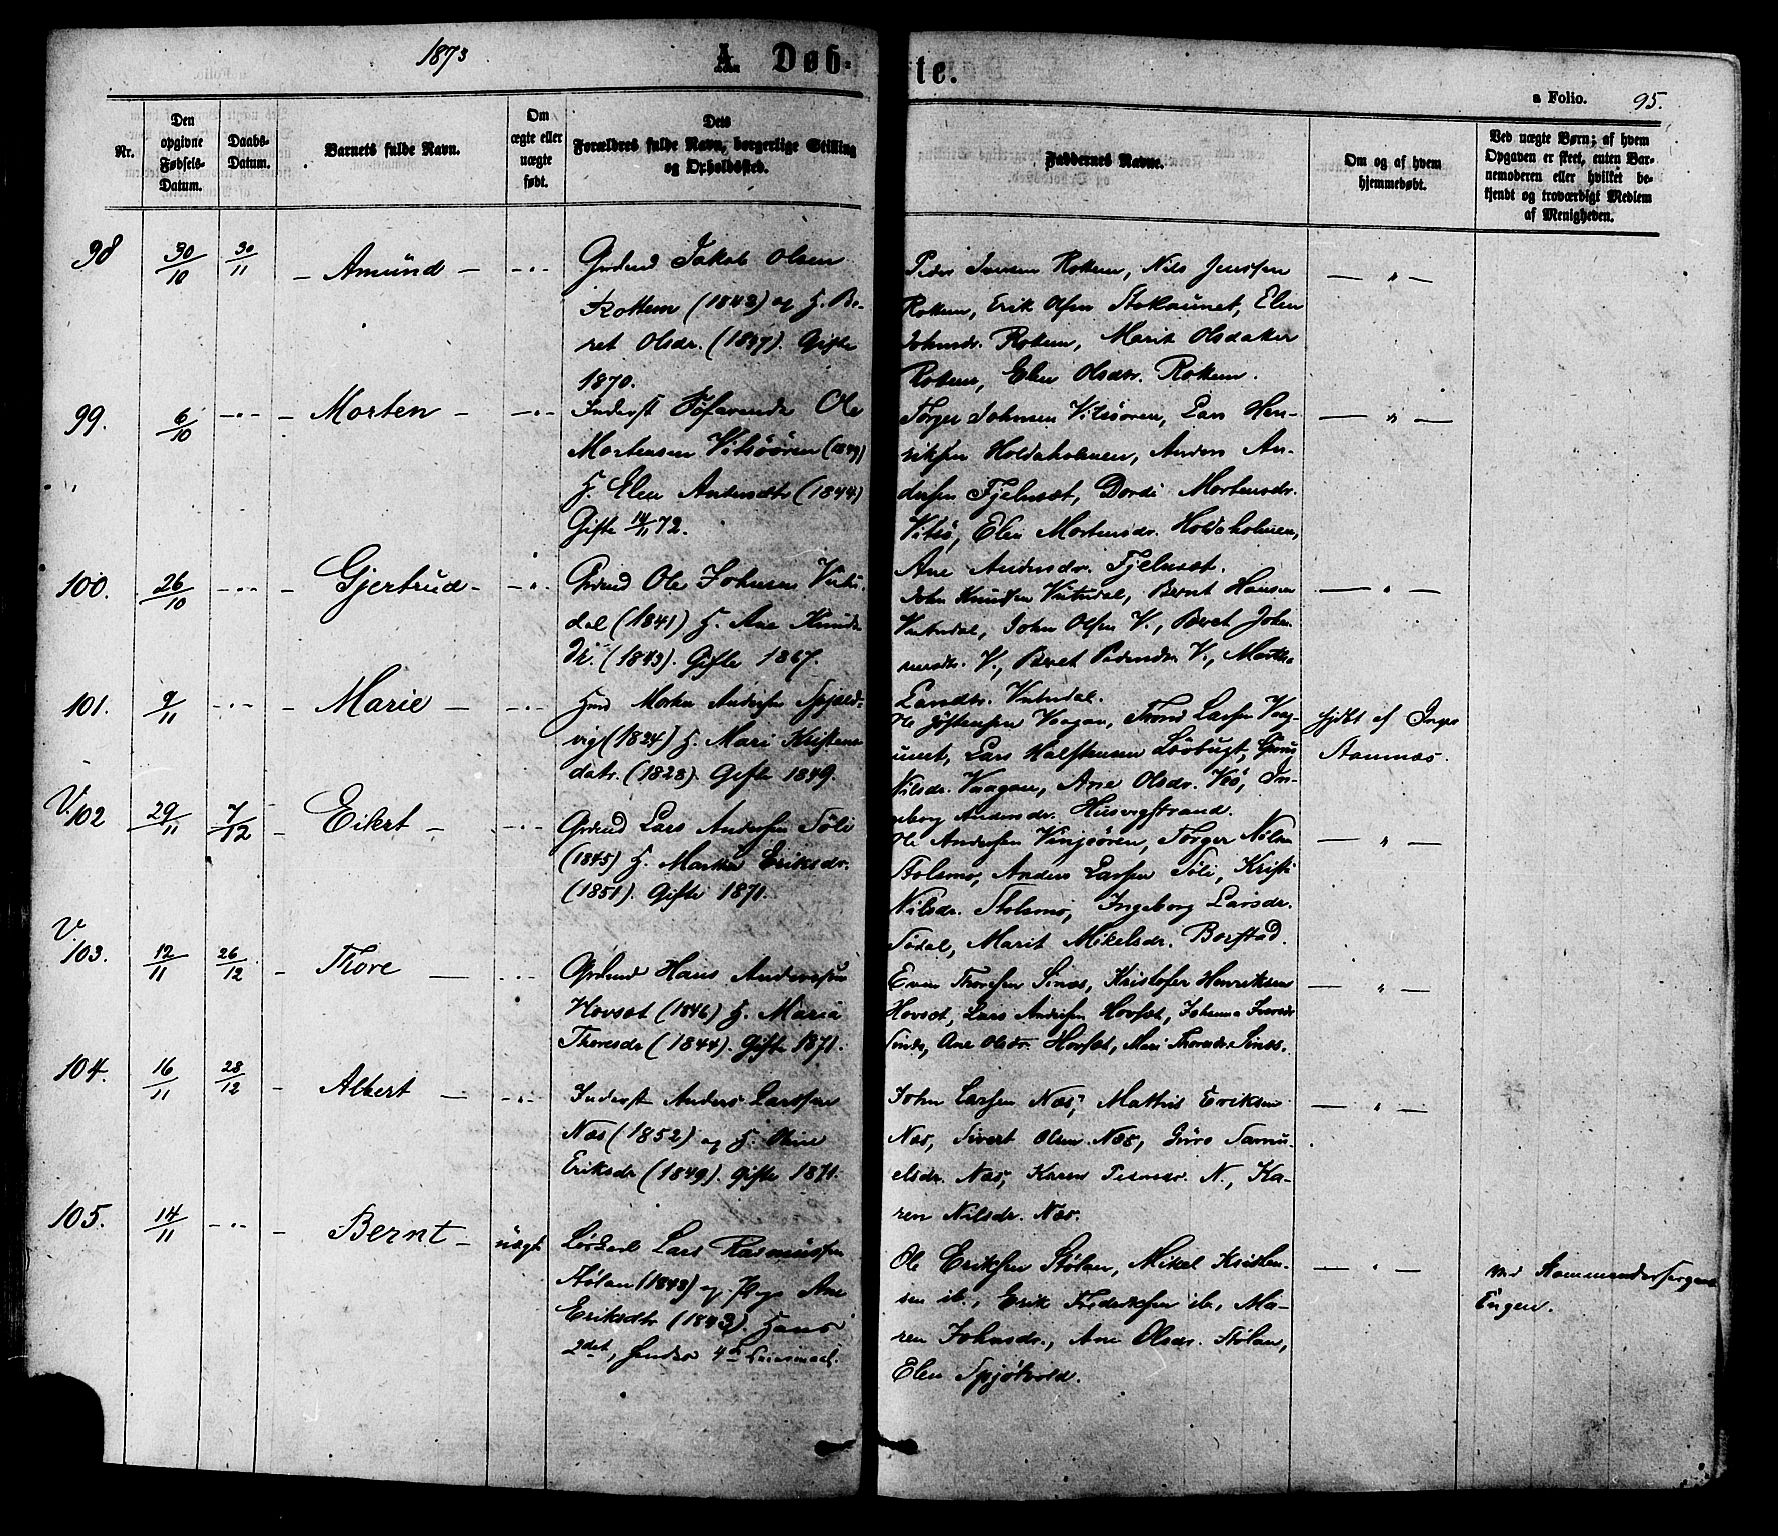 1873
A. Døbte.
a Folio. 95.
Nr.
Den opgivne Fødsels-Datum.
Daabs-Datum.
Barnets fulde Navn.
Om ægte eller uægte født.
Dets Forældres fulde Navn, borgerlige Stilling og Opholdssted.
Faddernes Navne.
Om og af hvem hjemmedøbt.
Ved uægte Børn; af hvem Opgaven er skeet, enten Barnemoderen eller hvilket bekjendt og troværdigt Medlem af Menigheden.
98 30/10 30/11 - Amund - -"-
Grdmd Jakob Olsen
Rottem (1843) og H. Be-
ret Olsdr. (1847). Gifte
1870.
Peder Rottem, Nils Jensen
Rottem, Erik Olsen Stokaunet, Elen
Johnsdr. Rottem, Marit Olsdatter
Rottem, Elen Olsdtr. Rottem.
— " —
99. 6/10 -"- - Morten - -"-
Inderst Ole
Mortensen Vitsøøren (1849)
H. Elen Andersdtr (1844)
Gifte 14/11 72.
Torger Johnsen Vitsøren, Lars Hen-
riksen Holdaholmen, Anders An-
dersen Fjelnset, Dordi Mortensdr.
Vitsø, Elen Mortensdr. Holdaholmen,
Ane Andersdr. Fjelnset.
— " —
100. 26/10 -"- - Gjertrud - -"-
Grdmd Ole Johnsen Vutu-
dal (1841) H. Ane Knuds-
dr. (1843). Gifte 1867.
John Knudsen Vutudal, Bernt Hansen
Vutudal, John Olsen V., Beret John-
sensdr. V., Beret Pedersdr. V.,
Larsdtr. Vutudal.
— " —
101. 9/11 -"- - Marie - -"-
Hmd Morten Andersen
vig (1824) H. Mari Kristens-
datr. (1828). Gifte 1849.
Ole Vaagan, Trond Larsen Vaag-
unet, Lars Halfstensen Løvbugt, Guru
Nilsdr. Vaagan, Ane Olsdr. Veø, In-
geborg Andersdr. Husvigstrand.
hjdbt af Inger
V. 102 29/11 7/12 - Eilert - -"-
Grdmd Lars Andersen Søli
(1845) H. Marta Eriksdr.
(1851). Gifte 1871.
Ole Andersen Vinjeøren, Torger Nilsen
Stolsmo, Anders Larsen Søli, Kristi
Nilsdr. Stolsmo, Ingeborg Larsdr.
Sødal, Marit Mikelsdr. Borstad.
— " —
V 103. 12/11 26/12 - Thore - -"-
Grdmd Hans Andersen
Hovset (1846) H. Maria
Thoresdr (1844). Gifte 1871.
Even Thoresen Sinæs, Kristofer Henriksen
Hovset, Lars Andersen Hovset, Johanna Iversdr
Sinæs, Ane Olsdr. Hovset, Mari Thoresdr Sinæs.
— " —
104. 16/11 28/12 - Albert - -"-
Inderst Anders Larssen
Næs (1852) og H. Oline
Eriksdr (1849). Gifte 1871.
John Larsen Næs, Mathis Eriksen
Næs, Sivert Olsen Næs, Guro Samu-
elsdr. Næs, Karen N., Ka-
ren Nilsdr. Næs.
— " —
105. 14/11 -"- - Bernt - uægt.
Løskarl Lars Rasmussen
Stølan (1848) og Pige Ane
Eriksdtr (1843). Hans
2det, hendes 4de Leiermaal.
Ole Eriksen Stølan, Mikel Kristen-
sen ib., Erik Frederiksen ib., Ma-
ren Johnsdr., Ane Olsdr. Stølan,
Elen Spjøtvold.
— " —
ved Kommandersergent
Engen.